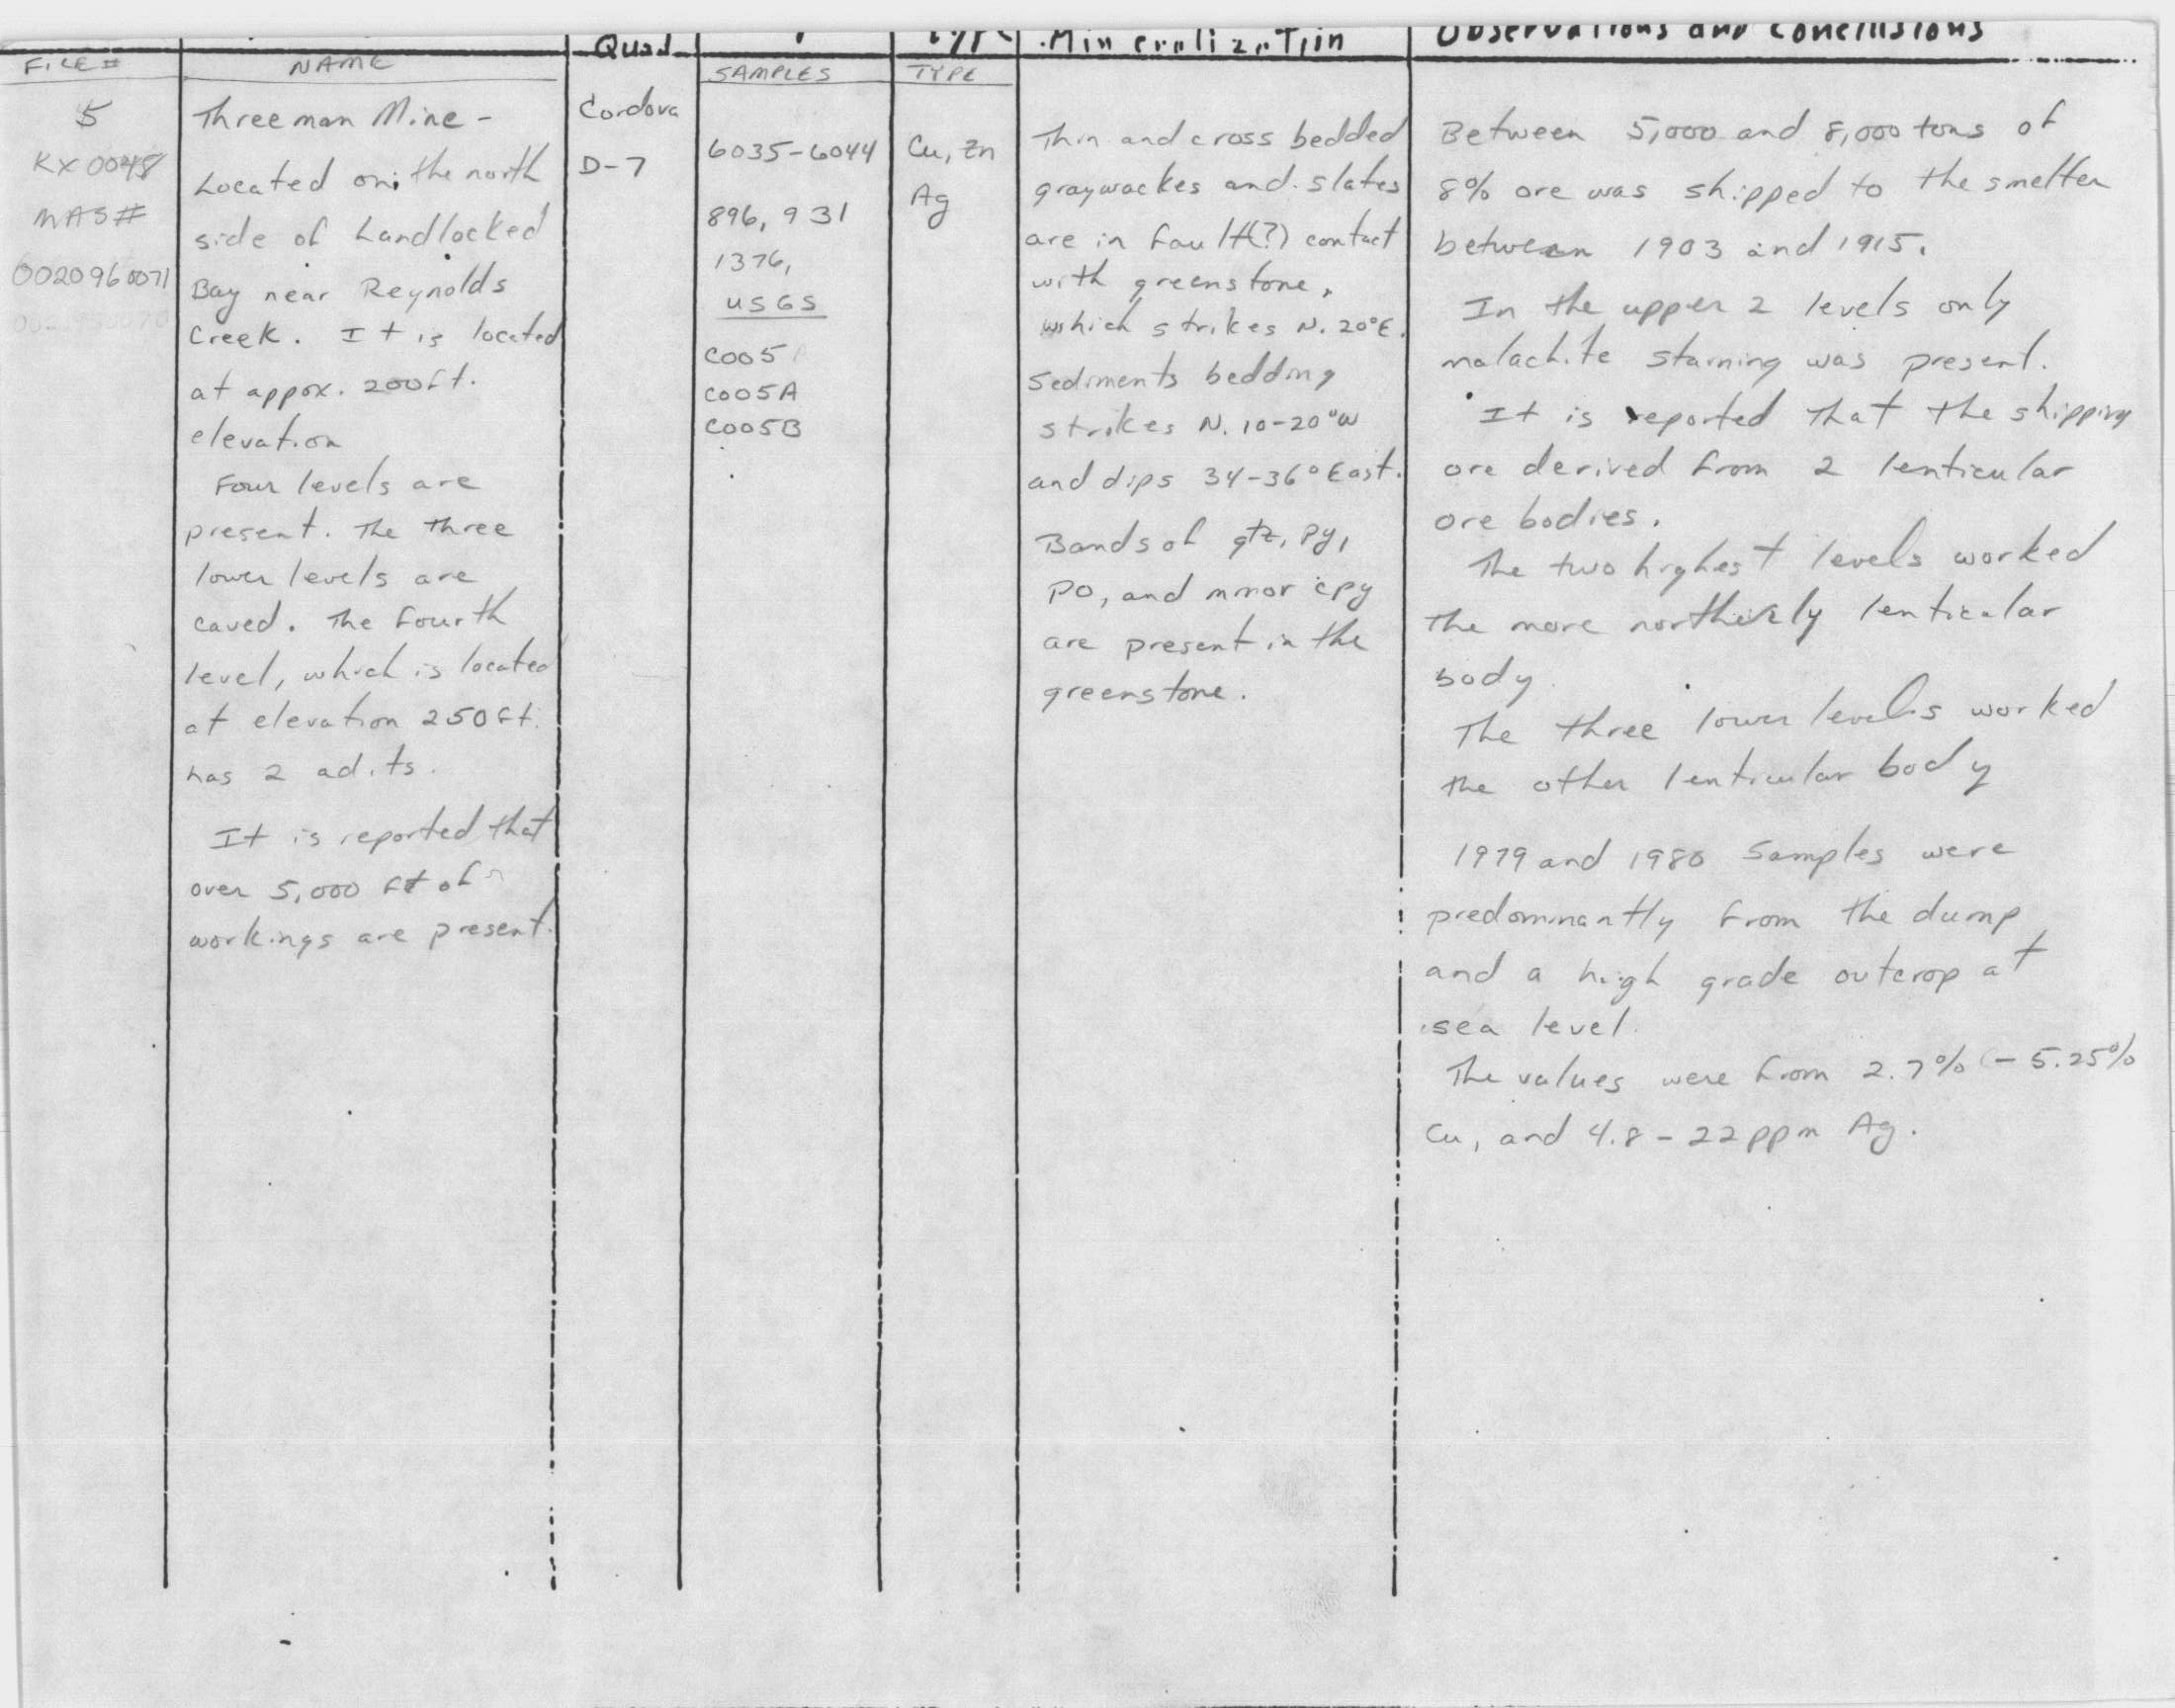 Quad
Type
Mineralization
Observations and Conclusions
FILE #
NAME
SAMPLES
TYPE
5
KX 0048
MAS#
0020960071
Threeman Mine -
Located on the north
side of Landlocked
Bay near Reynolds
Creek. It is located
at appox. 200ft.
elevation
Four levels are
present. The three
lower levels are
caved. The fourth
level, which is located
at elevation 250ft.
has 2 adits.
It is reported that
over 5,000 ft of
workings are present.
Cordova
D-7
6035-6044
896, 931
1376,
USGS
C005
C005A
C005B
Cu, Zn
Ag
Thin and cross bedded
graywackes and slates
are in fault(?) contact
with greenstone,
which strikes N. 20°E.
Sediments bedding
strikes N. 10-20°W
and dips 34-36° East.
Bands of qtz, py,
po, and minor cpy
are present in the
greenstone.
Between 5,000 and 8,000 tons of
8% ore was shipped to the smelter
between 1903 and 1915.
In the upper 2 levels only
malachite staining was present.
It is reported that the shipping
ore derived from 2 lenticular
ore bodies.
The two highest levels worked
the more northerly lenticular
body
The three lower levels worked
the other lenticular body
1979 and 1980 Samples were
predominantly from the dump
and a high grade outcrop at
sea level.
The values were from 2.7% - 5.25%
Cu, and 4.8 - 22 ppm Ag.